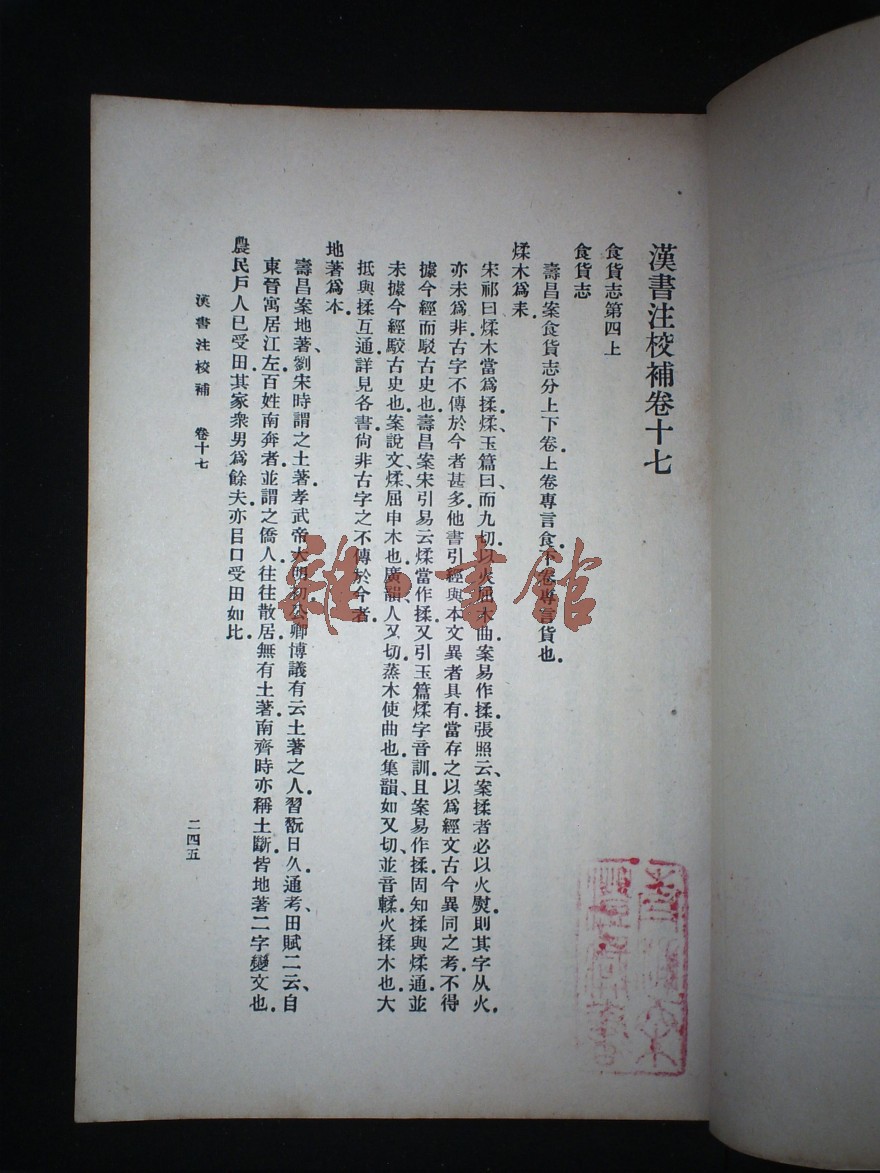 漢書注校補卷十七
食貨志第四上
食貨志
壽昌案食貨志分上下卷上卷專言食下卷專言貨也.
煣木爲耒.
宋祁曰煣木當爲揉、煣、玉篇曰、而九切.以火屈木曲.案易作揉.張照云、案揉者必以火熨則其字从火.
亦未爲非.古字不傳於今者甚多.他書引經與本文異者具有.當存之以爲經文古今異同之考.不得
據今經而駁古史也.壽昌案宋引易云煣當作揉.又引玉篇煣字音訓.且案易作揉.固知揉與煣通.並
未據今經駁古史也.案說文、煣、屈申木也.廣韻、人又切.蒸木使曲也.集韻、如又切、並音輮.火揉木也.大
抵與揉互通.詳見各書.尙非古字之不傳於今者.
地著爲本.
壽昌案地著、劉宋時謂之土著.孝武帝大明初公卿博議有云土著之人.習翫日久.通考、田賦二云、自
東晉寓居江左.百姓南奔者.並謂之僑人.往往散居.無有土著.南齊時亦稱土斷.皆地著二字變文也.
農民戶人已受田.其家衆男爲餘夫.亦㠯口受田如比.
漢書注校補 卷十七
二四五
雜·書館